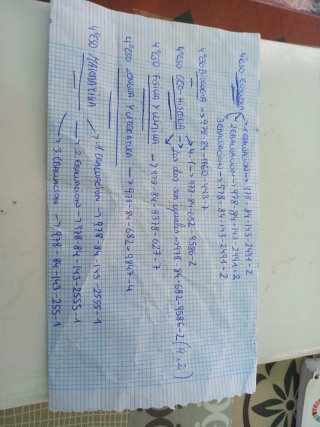 4ºESO ECONOMÍA → 1 EVALUACION → 978-84-143-2491-2
2 EVALUACION → 978-84-143-2491-2
3 EVALUACION → 978-84-143-2491-2
4ºESO BIOLOGIA → 978-84-1160-443-7
→ 4.1 → 978-84-682-9586-2
4ºESO GEO-HISTORIA → Los dos son iguales → 978-84-682-9586-2 (4.2)
4ºESO FISICA Y QUIMICA → 978-84-8918-627-7
4ºESO LENGUA Y LITERATURA → 978-84-682-9847-4
4ºESO MATEMATICAS → 1 EVALUACION → 978-84-143-2555-1
→ 2 EVALUACION → 978-84-143-2555-1
→ 3 EVALUACION → 978-84-143-255-1